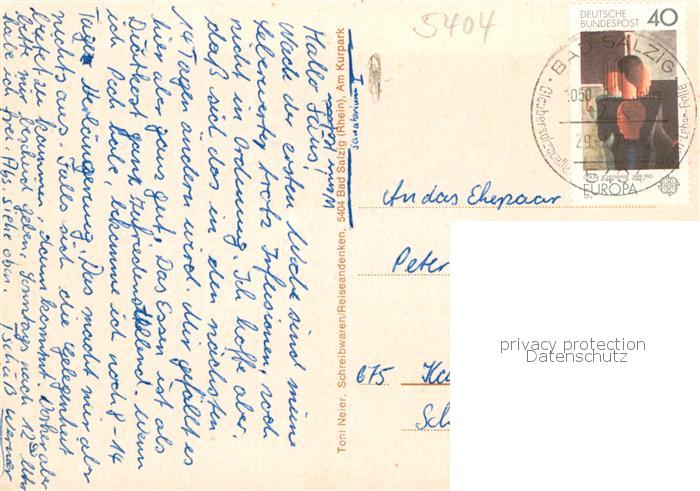 Hallo Ihr
Nach der ersten Woche sind meine
Leberwerte, trotz Infusionen, noch
nicht in Ordnung. Ich hoffe aber,
daß sich das in den nächsten
14 Tagen ändern wird. Mir gefällt es
hier aber ganz gut. Das Essen ist als
Diätkost ganz zufriedenstellend. Wenn
ich Pech habe, bekomme ich noch 8-14
Tage Verlängerung. Das macht mir aber
nichts aus. Falls sich die Gelegenheit
bietet zu kommen, dann kommt. Vorher aber
bitte mir Bescheid geben, Sonntags nach 12 30 Uhr
habe ich frei. Abs. siehe oben. Tschüß Werner
Sanatorium I
Toni Neier, Schreibwaren/Reiseandenken, 5404 Bad Salzig (Rhein), Am Kurpark
5404
DEUTSCHE BUNDESPOST 40
EUROPA
BAD SALZIG
An das Ehepaar
Peter
675 Ka
Sch
privacy protection
Datenschutz